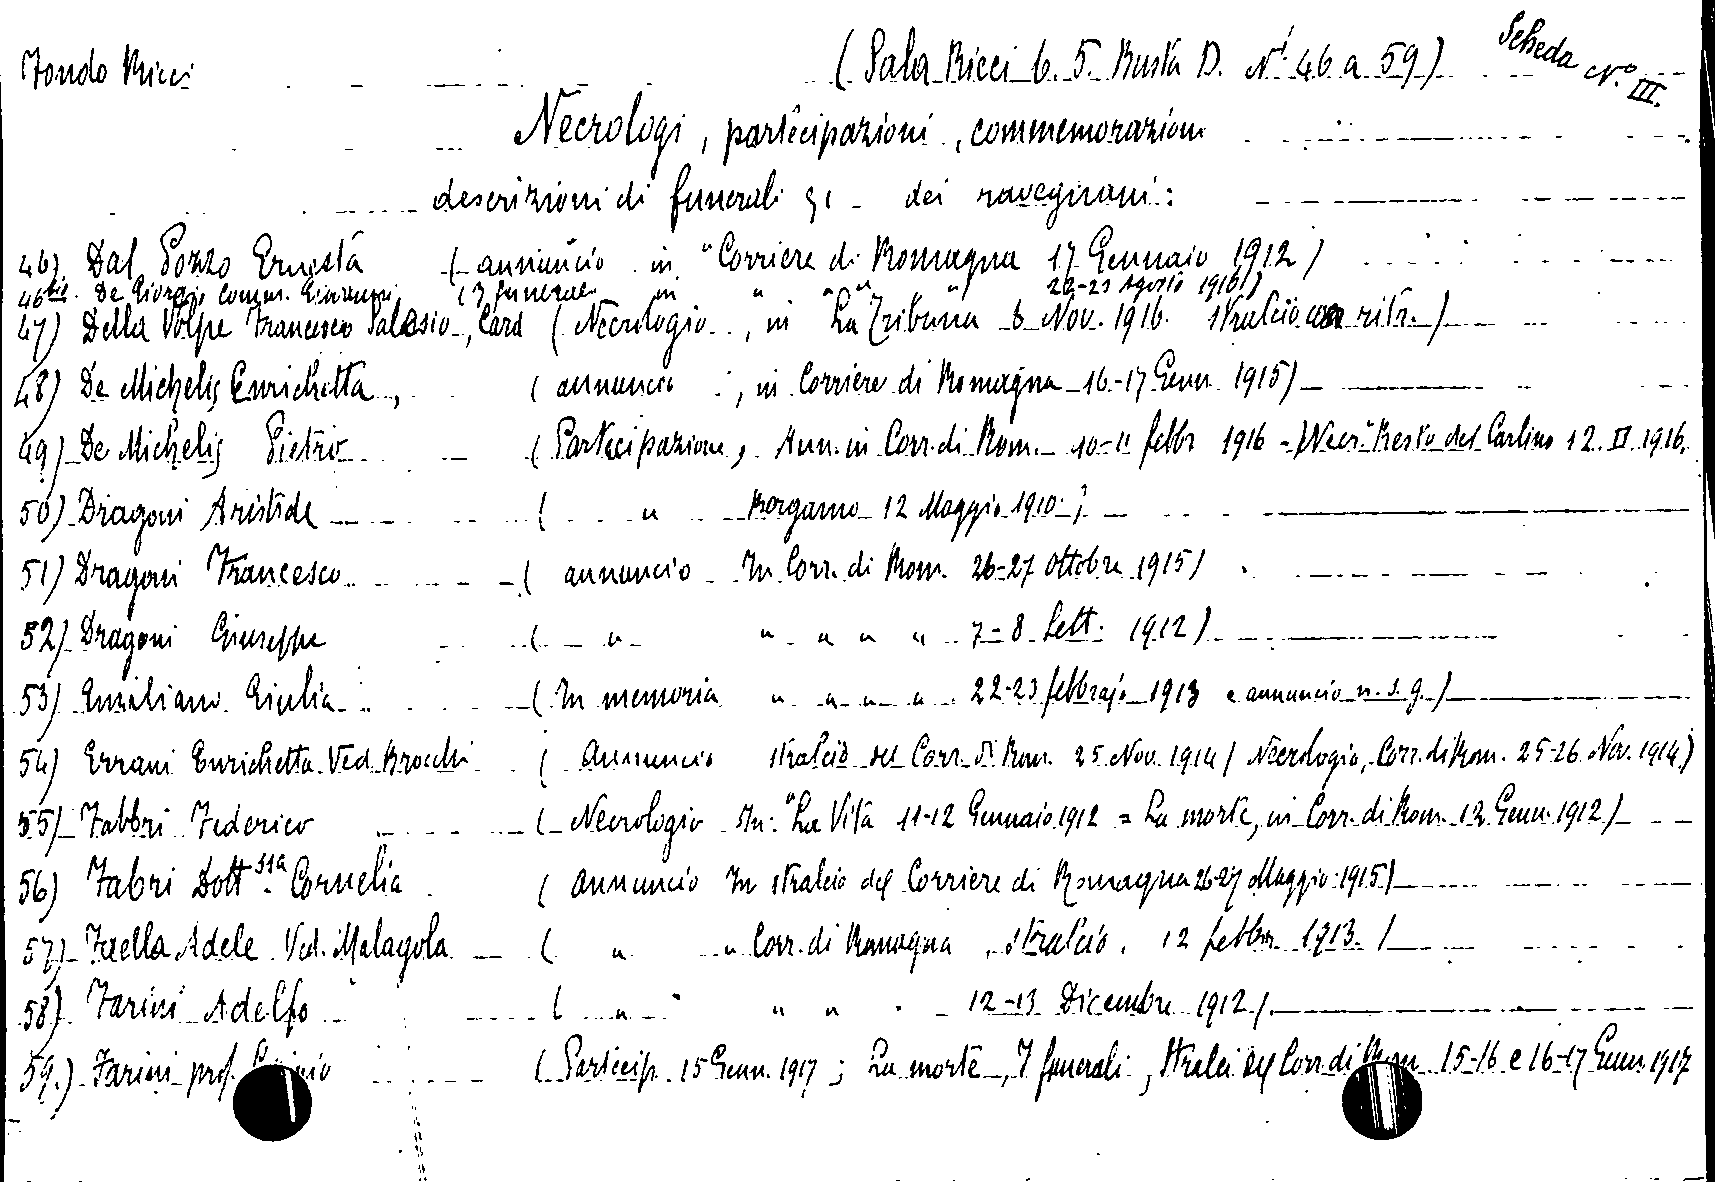 Fondo Ricci (Sala Ricci b. 5. Busta D. Nⁱ 46 a 59) Scheda Nº III.
Necrologi, partecipazioni, commemorazioni
descrizioni di funerali dei ravegnani:
46) Dal Pozzo Ernesta (annuncio in "Corriere di Romagna 17 Gennaio 1912)
46bis. De Giorgio Comm. Giovanni (I funerali in " " " 22-23 Agosto 1916)
47) Della Volpe Francesco Salesio, Card (Necrologio, in "La Tribuna 6 Nov. 1916. stralcio con ritr.)
48) De Michelis Enrichetta, (annuncio, in Corriere di Romagna 16-17 Genn. 1915)
49) De Michelis Pietro (Partecipazione, Ann. in Corr. di Rom. 10-11 febbr 1916 - Necr. Resto del Carlino 12. II. 1916.
50) Dragoni Aristide ( " Bergamo 12 Maggio 1910.)
51) Dragoni Francesco (annuncio In Corr. di Rom. 26-27 Ottobre 1915)
52) Dragoni Giuseppe ( " " " " " 7-8 Sett. 1912)
53) Emiliani Giulia (In memoria " " " " 22-23 febbrajo 1913 e annuncio n. s. g.)
54) Errani Enrichetta Ved. Brocchi (Annuncio stralcio del Corr. di Rom. 25 Nov. 1914 / Necrologio, Corr. di Rom. 25-26 Nov. 1914)
55) Fabbri Federico (Necrologio In: "La Vita 11-12 Gennaio 1912 = La morte, in Corr. di Rom. 12 Genn. 1912)
56) Fabri Dott.ssa Cornelia (Annuncio In stralcio del Corriere di Romagna 26-27 Maggio 1915)
57) Faella Adele Ved. Malagola ( " " Corr. di Romagna, stralcio. 12 febbr. 1913.)
58) Farini Adelfo ( " " " 12-13 Dicembre 1912)
59.) Farini prof. (Partecip. 15 Genn. 1917; La morte, I funerali, Stralci del Corr. di Rom. 15-16 e 16-17 Genn. 1917